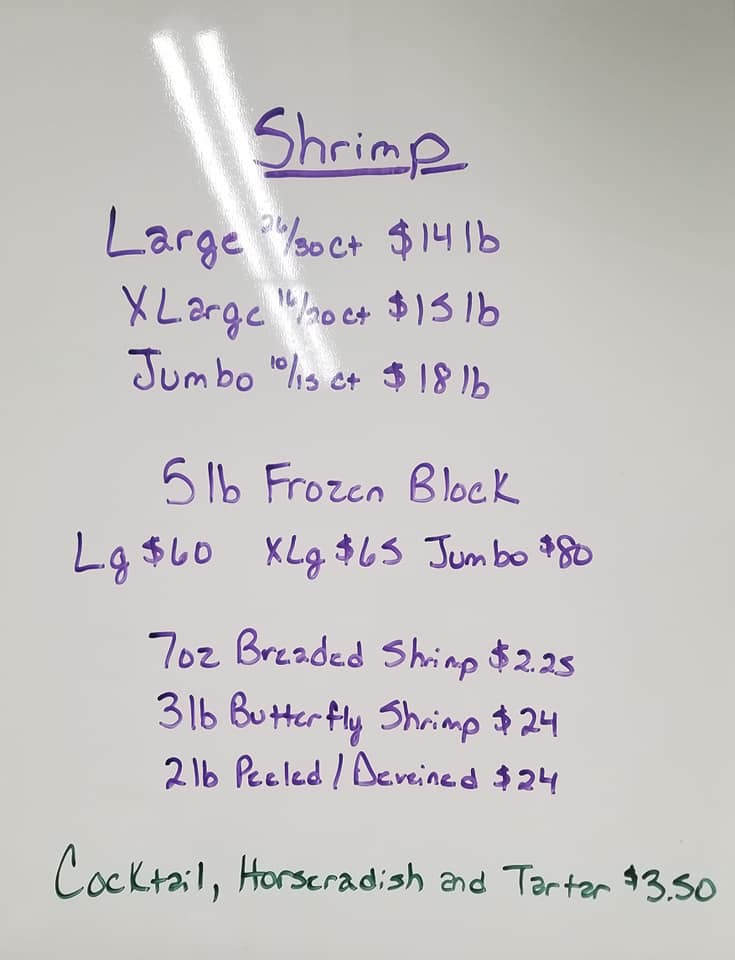 Shrimp
Large 26/30 ct $14 lb
XLarge 16/20 ct $15 lb
Jumbo 10/15 ct $18 lb
5 lb Frozen Block
Lg $60 XLg $65 Jumbo $80
7oz Breaded Shrimp $2.25
3 lb Butterfly Shrimp $24
2 lb Peeled / Deveined $24
Cocktail, Horseradish and Tartar $3.50